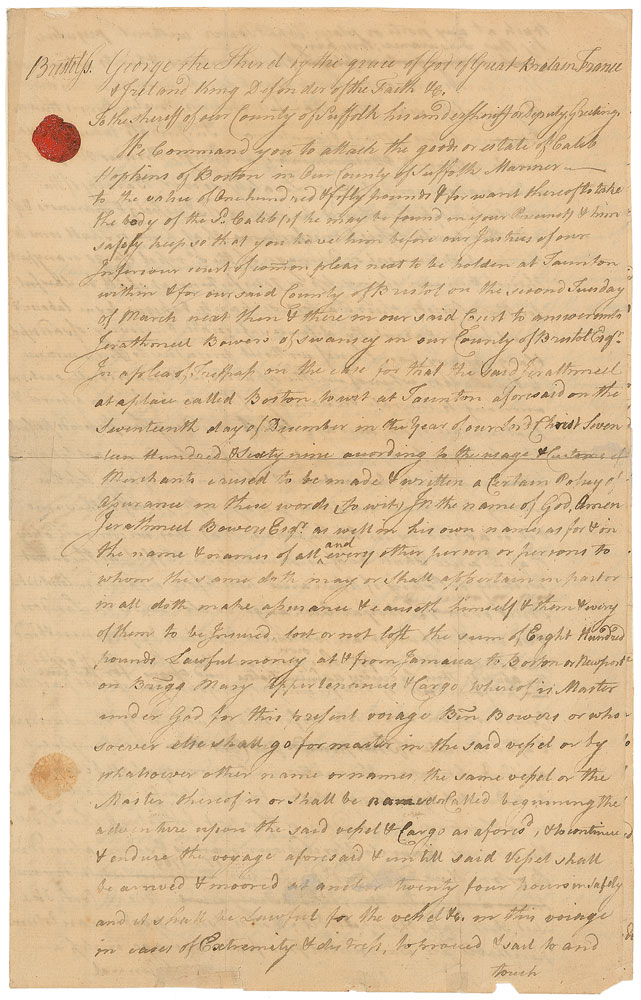 Bristol ss. George the Third by the grace of God of Great Britain France
& Ireland King Defender of the Faith &c.
To the sheriff of our County of Suffolk his undersheriff or Deputy Greeting
We Command you to attach the goods or estate of Caleb
Hopkins of Boston in Our County of Suffolk Mariner
to the value of One hundred & fifty pounds & for want thereof to take
the body of the Sd. Caleb (if he may be found in your Precinct) & him
safely keep so that you have him before our Justices of our
Inferiour court of common pleas next to be holden at Taunton
within & for our said County of Bristol on the second Tuesday
of March next then & there in our said Court to answer unto
Jerathmeel Bowers of swansey in our County of Bristol Esqr.
In a plea of Trespass on the case for that the said Jerathmeel
at a place called Boston to wit at Taunton aforesaid on the
Seventeenth day of December in the Year of our Lord Christ Seven
teen Hundred & Sixty nine acording to the usage & Custom of
Merchants caused to be made & written a Certain Policy of
Assurance in these words (to wit) In the name of God, Amen
Jerathmeel Bowers Esqr. as well in his own name, as for & in
the name & names of all and every other person or persons to
whom the same doth may or shall appertain in part or
in all doth make assurance & causeth himself & them & every
of them to be Insured, lost or not lost the sum of Eight Hundred
pounds Lawful money at & from Jamaica to Boston or Newport
on Brigg Mary Appertenances & Cargo whereof is Master
under God for this present voiage Bin Bowers or who-
soever else shall go for master in the said vessel or by
whatsoever other name or names the same vessel or the
Master thereof is or shall be named or Called beginning the
adventure upon the said vessel & Cargo as aforesd., & to continue
& endure the voyage aforesaid & untill said Vessel shall
be arrived & moored at anchor twenty four hours in safety
and it shall be Lawful for the vessel &c. in this voiage
in cases of Extremity & distress, to proceed & sail to and
touch